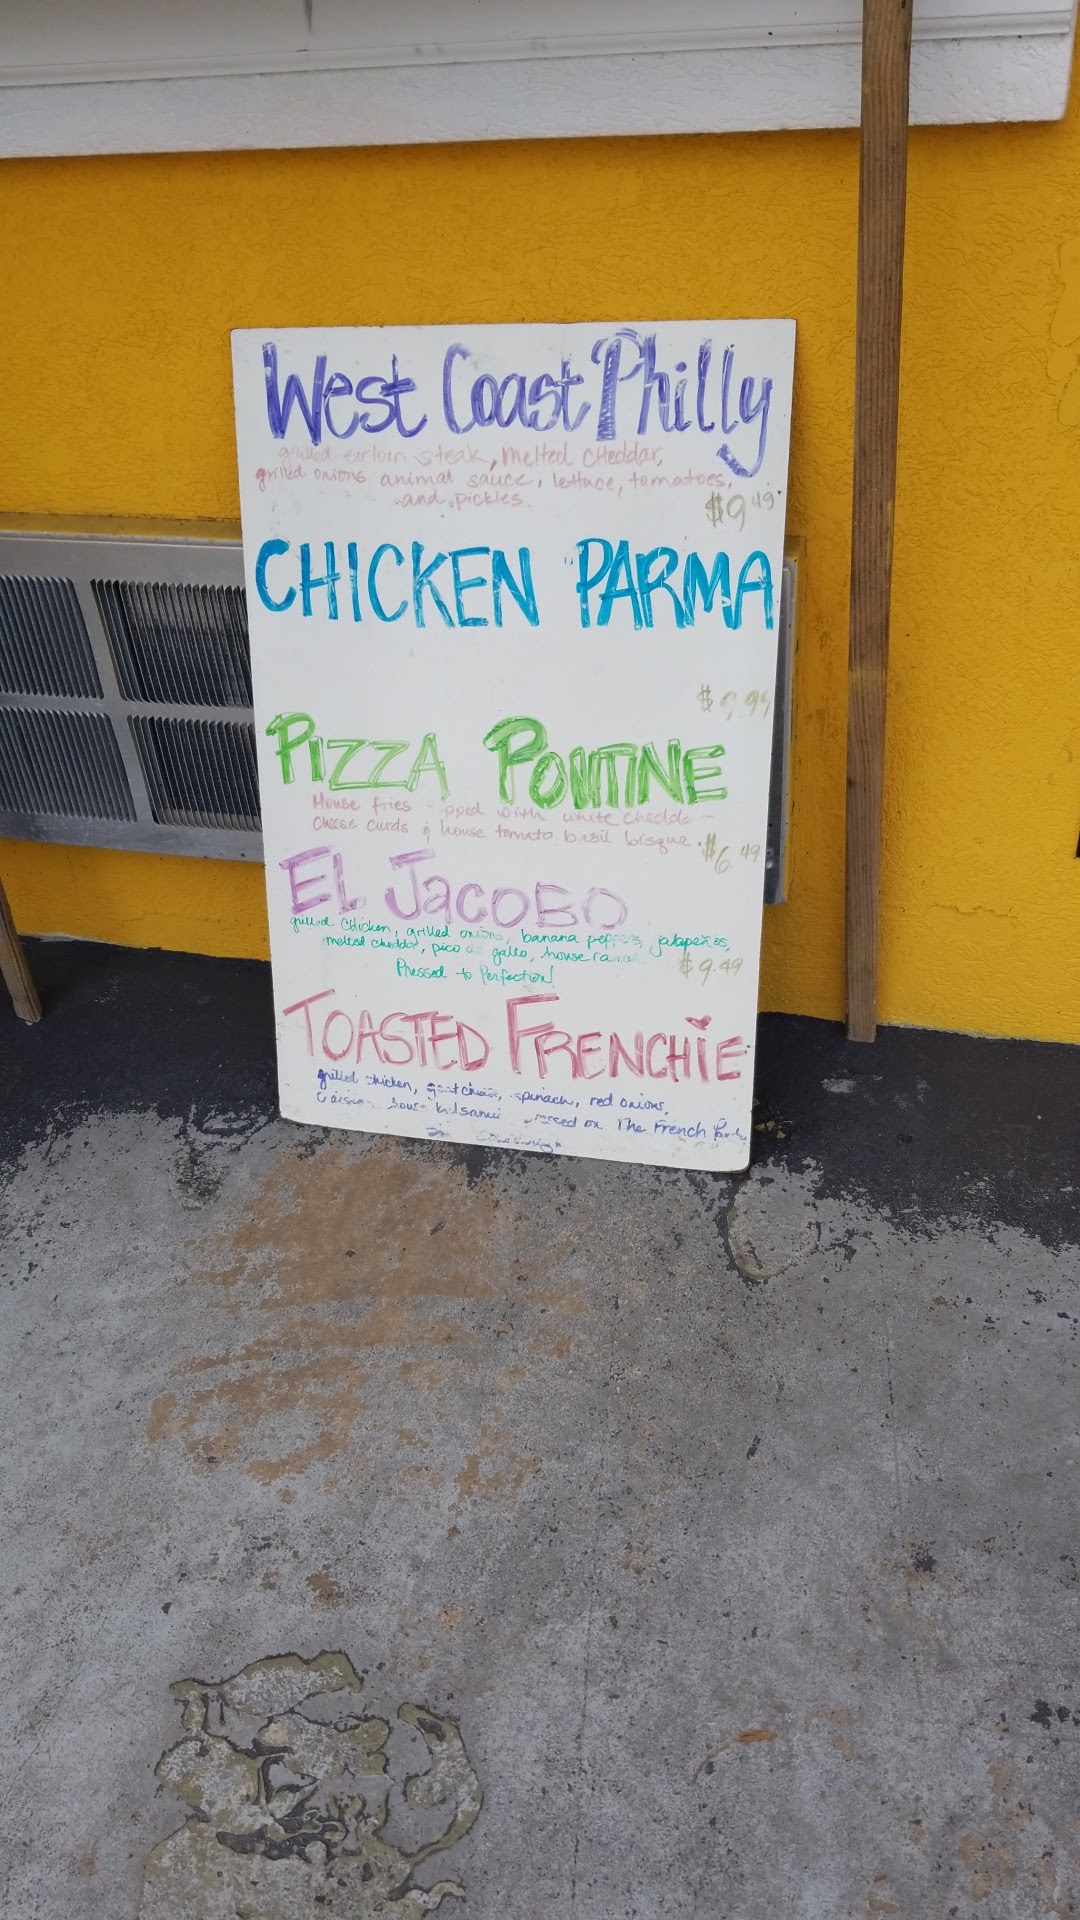 West Coast Philly
grilled sirloin steak, melted cheddar,
grilled onions animal sauce, lettuce, tomatoes,
and pickles
$9.49
CHICKEN PARMA
$9.99
PIZZA POUTINE
House fries with white
cheese curds & house tomato basil bisque.
$6.49
EL JACOBO
grilled chicken, grilled onions, banana peppers, jalapeños,
melted cheddar, pico de gallo, house
$9.49
Pressed to Perfection!
TOASTED FRENCHIE
grilled chicken, goat cheese, spinach, red onions,
house on The French